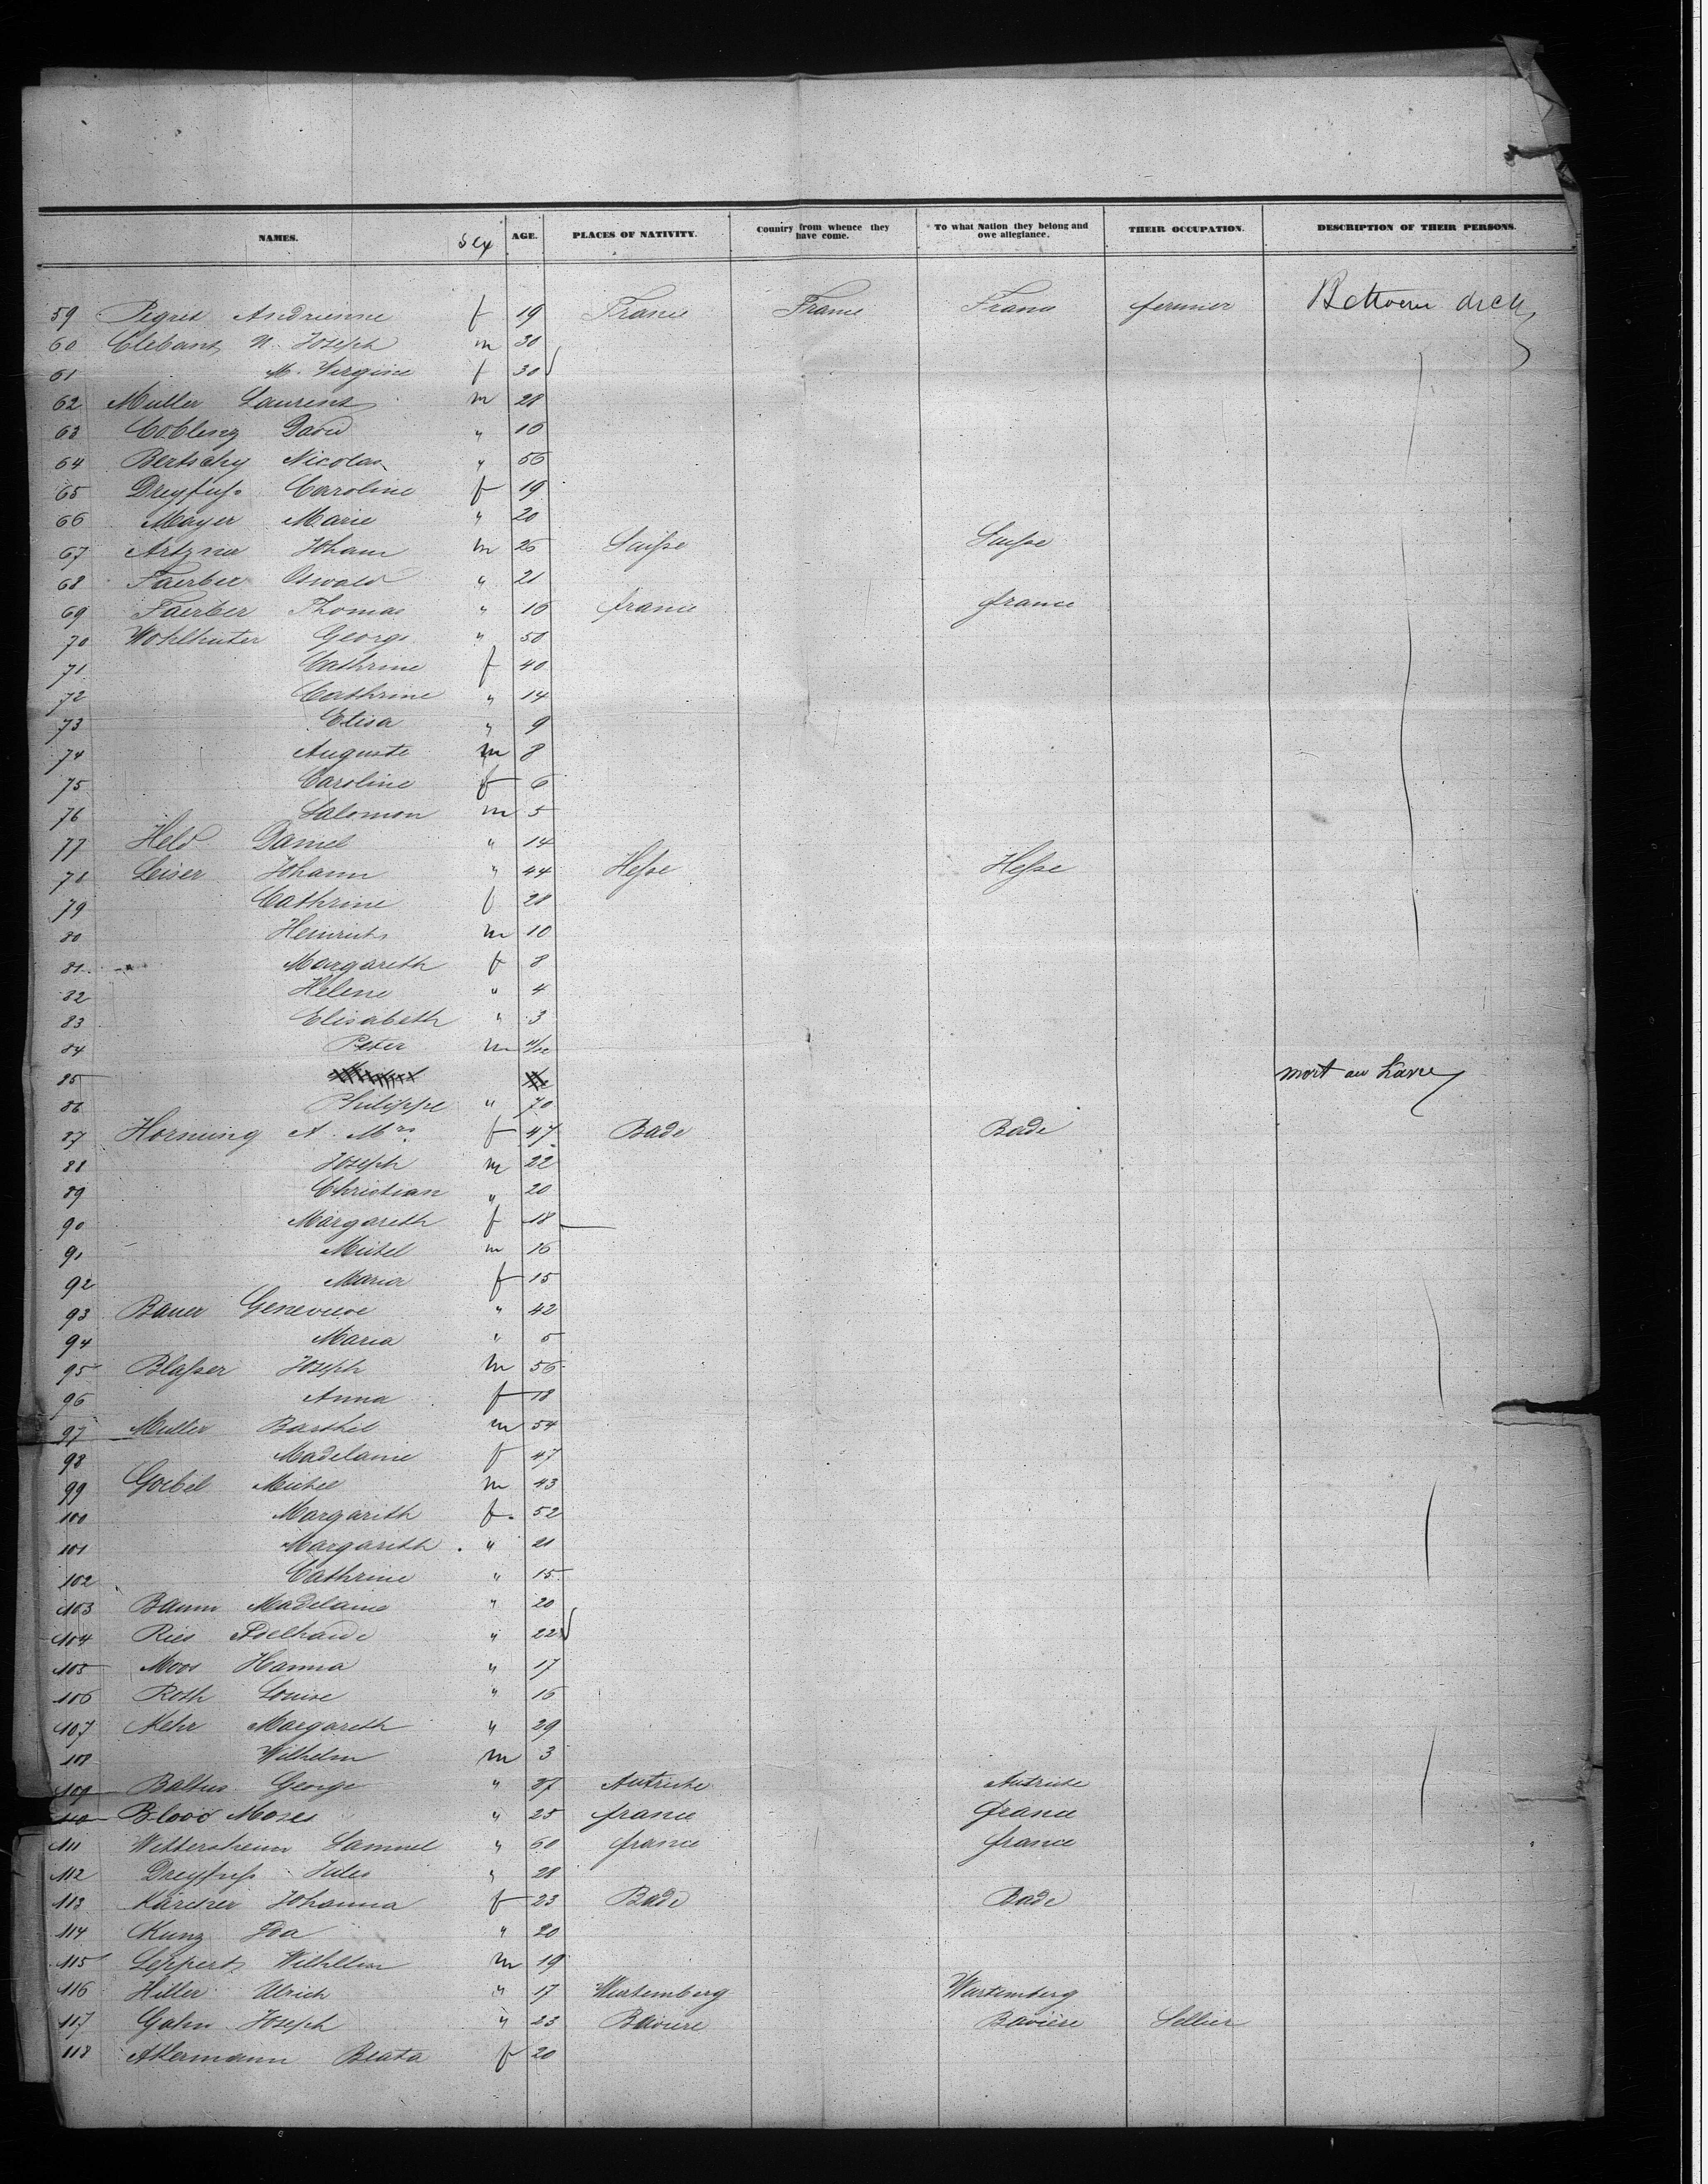 NAMES. Sex AGE. PLACES OF NATIVITY. Country from whence they have come. To what Nation they belong and owe allegiance. THEIR OCCUPATION. DESCRIPTION OF THEIR PERSONS.
59 Pigret Andrienne f 19 France France France fermier Between deck
60 N. Joseph m 30
61 M. Virginie f 30
62 Muller Laurent m 28
63 Coblenz David " 16
64 Bertschy Nicolas " 56
65 Dreyfuſs Caroline f 19
66 Mayer Marie " 20
67 Artzner Johann m 26 Suiſse Suiſse
68 Faerber Oswald " 21
69 Faerber Thomas " 16 france france
70 Wohlhuter George " 50
71 Cathrine f 40
72 Cathrine " 14
73 Elisa " 9
74 Auguste m 8
75 Caroline f 6
76 Salomon m 5
77 Held Daniel " 14
78 Leiser Johann " 44 Heſse Heſse
79 Cathrine f 28
80 Heinrich m 10
81 Margareth f 8
82 Helene " 4
83 Elisabeth " 3
84 Peter m 11/12
85 mort au havre
86 Philippe " 70
87 Hornung A. Mra f 47 Bade Bade
88 Joseph m 22
89 Christian " 20
90 Margareth f 18
91 Michel m 16
92 Maria f 15
93 Bauer Genevieve " 42
94 Maria " 5
95 Blaſser Joseph m 56
96 Anna f 18
97 Muller Barthel m 54
98 Madelaine f 47
99 Goebel Michel m 43
100 Margarith f. 52
101 Margarith " 21
102 Cathrine " 15
103 Baum Madelaine " 20
104 Ries Adelhaide " 22
105 Moos Hanna " 17
106 Roth Louise " 16
107 Kehr Margareth " 29
108 Wilhelm m 3
109 Baltus George " 37 Autriche Autriche
110 Blood Moses " 25 france france
111 Wittersheim Samuel " 60 france france
112 Dreyfuſs Jules " 28
113 Karcher Johanna f 23 Bade Bade
114 Kunz Eva " 20
115 Leppert Wilhelm m 19
116 Hiller Ulrich " 17 Wurtemberg Wurtemberg
117 Gahn Joseph " 23 Baviere Baviere Sellier
118 Akermann Beata f 20